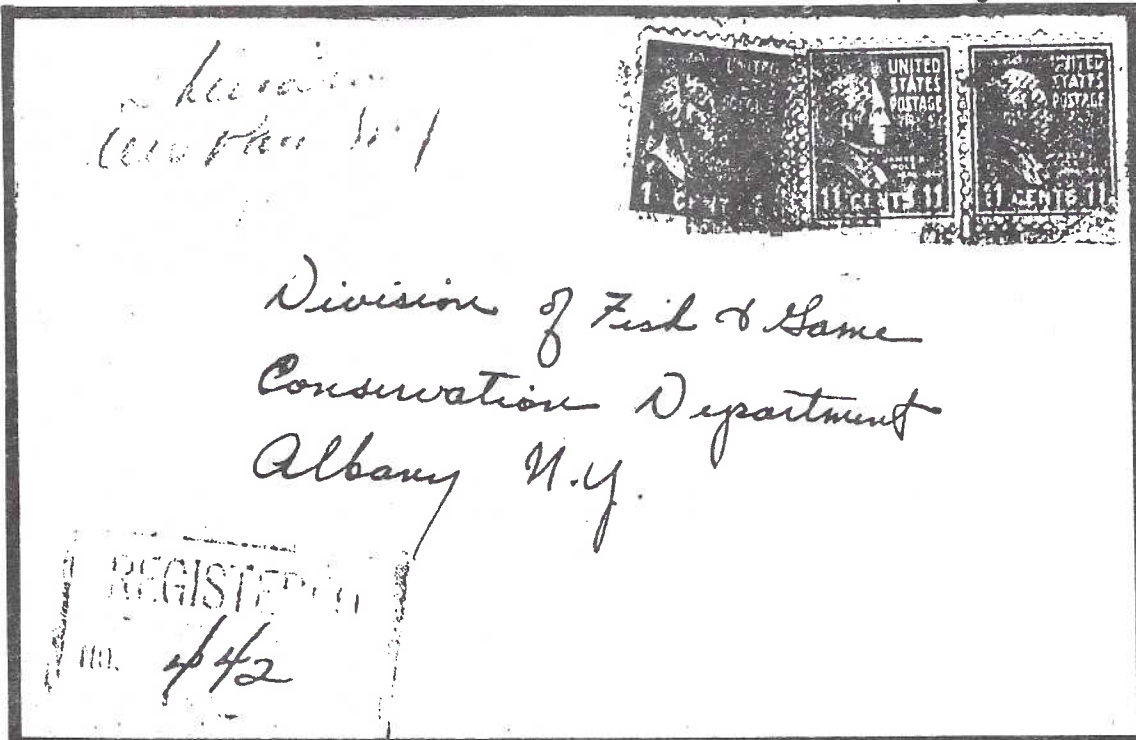 N.Y.
UNITED
UNITED
STATES
POSTAGE
JAMES K.
POLK
11 CENTS 11
UNITED
STATES
POSTAGE
11 CENTS 11
Division of Fish & Game
Conservation Department
Albany N.Y.
REGISTERED
NO. 442